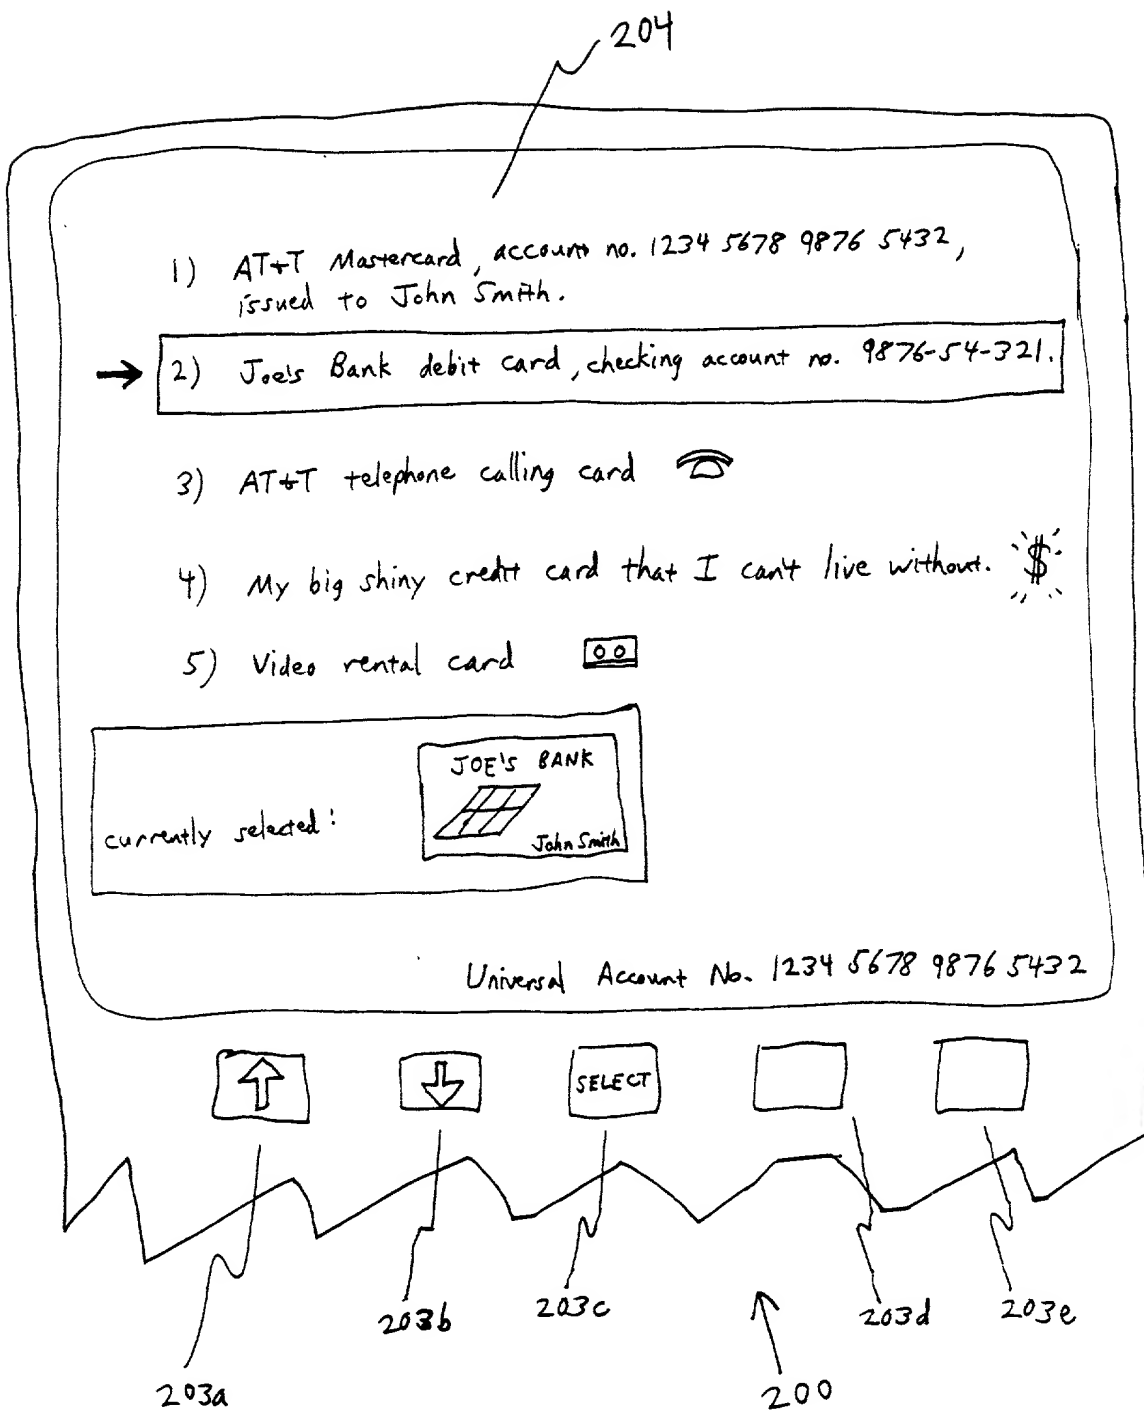 204
1) AT&T Mastercard, account no. 1234 5678 9876 5432,
issued to John Smith.
2) Joe's Bank debit card, checking account no. 9876-54-321.
3) AT&T telephone calling card
4) My big shiny credit card that I can't live without. $
5) Video rental card
JOE'S BANK
currently selected:
John Smith
Universal Account No. 1234 5678 9876 5432
SELECT
203a
203b
203c
203d
203e
200